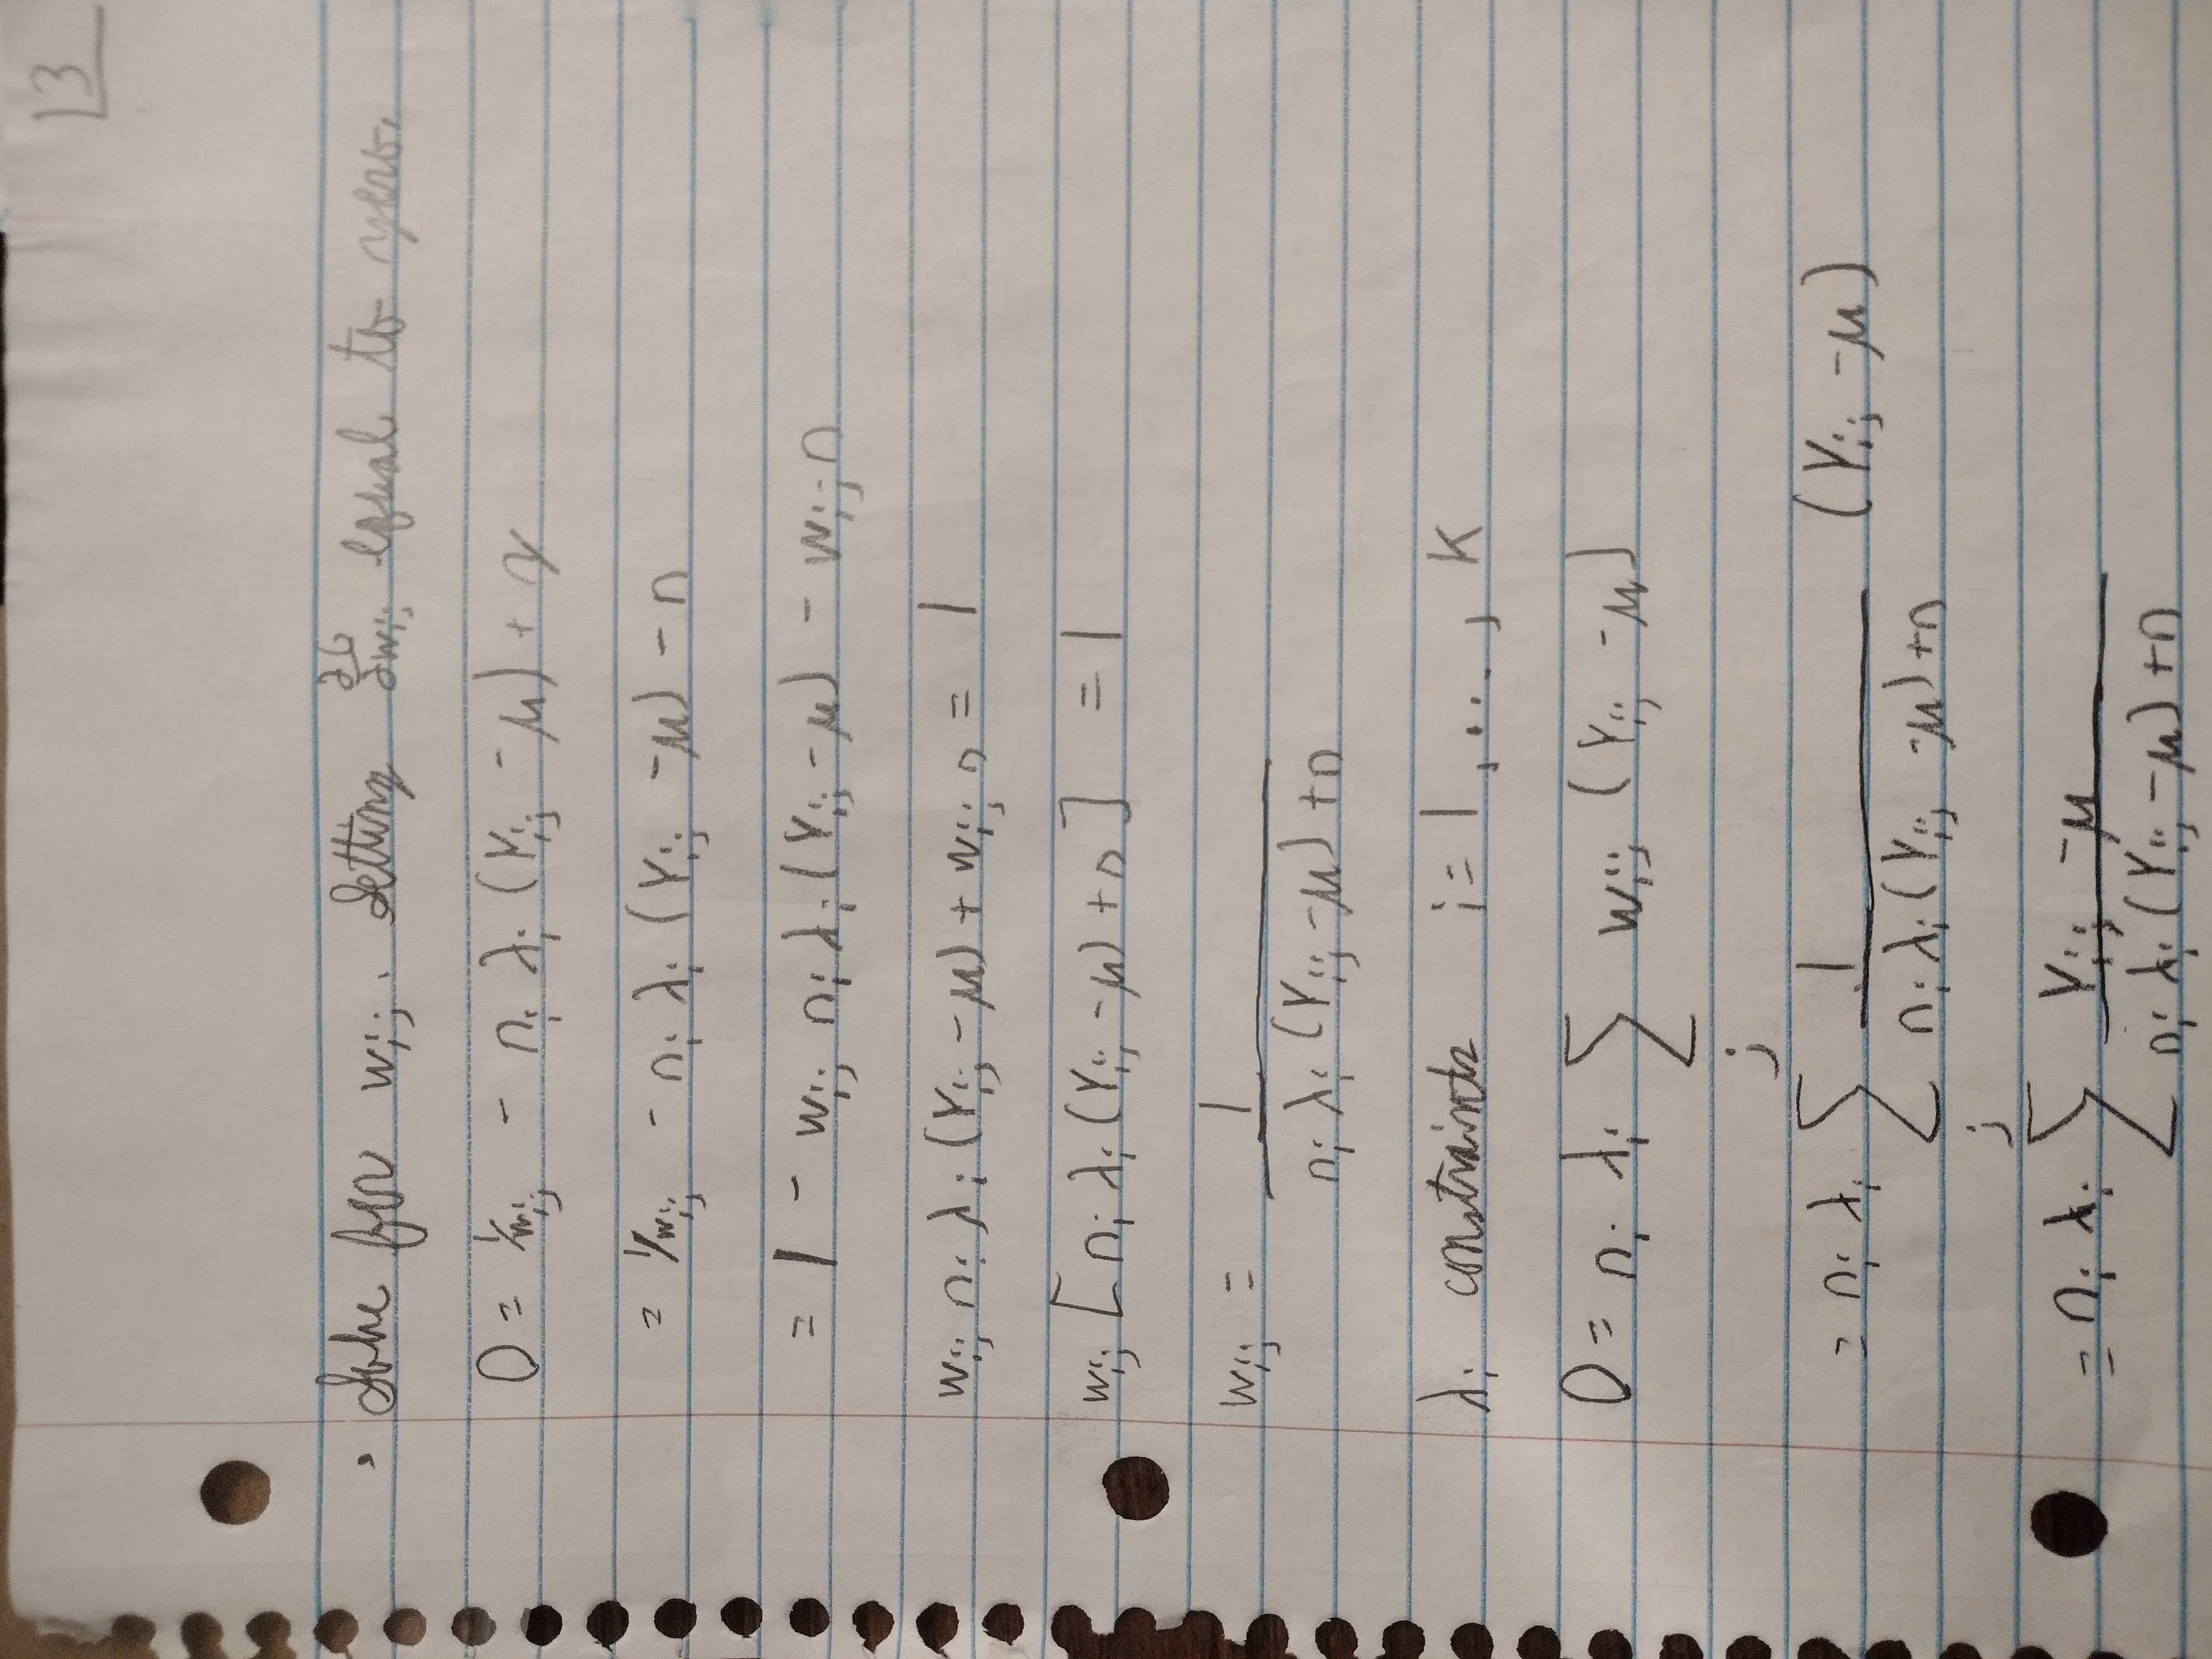 3
Solve for wij. Setting ∂G/∂wij equal to zero.
0 = 1/wij - ni λi (Yij - μ) + γ
= 1/wij - ni λi (Yij - μ) - n
= 1 - wij ni λi (Yij - μ) - wij n
wij ni λi (Yij - μ) + wij n = 1
wij [ni λi (Yij - μ) + n] = 1
wij = 1 / (ni λi (Yij - μ) + n)
λi constraints i = 1, ..., K
0 = ni λi Σj wij (Yij - μ)
= ni λi Σj 1 / (ni λi (Yij - μ) + n) (Yij - μ)
= ni λi Σ (Yij - μ) / (ni λi (Yij - μ) + n)